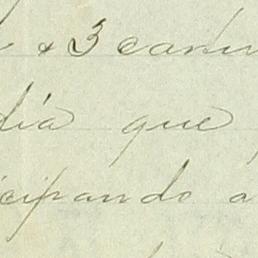 & 3 camin
día que
cipando a